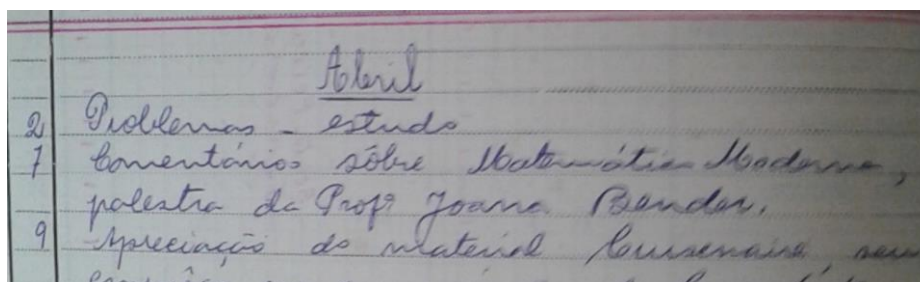 Abril
2 Problemas - estudo
7 Comentários sôbre Matemática Moderna,
palestra da Profª Joana Bender.
9 Apreciação do material Cuisenaire, seu